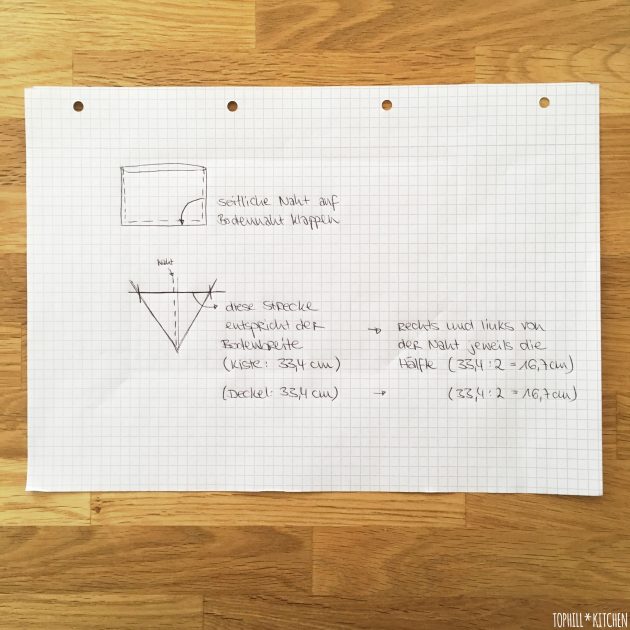 seitliche Naht auf
Bodennaht klappen
Naht
diese Strecke
entspricht der
Bodenbreite
(Kiste: 33,4 cm)
→ rechts und links von
der Naht jeweils die
Hälfte (33,4 : 2 = 16,7 cm)
(Deckel: 33,4 cm) → (33,4 : 2 = 16,7 cm)
TOPHILL*KITCHEN